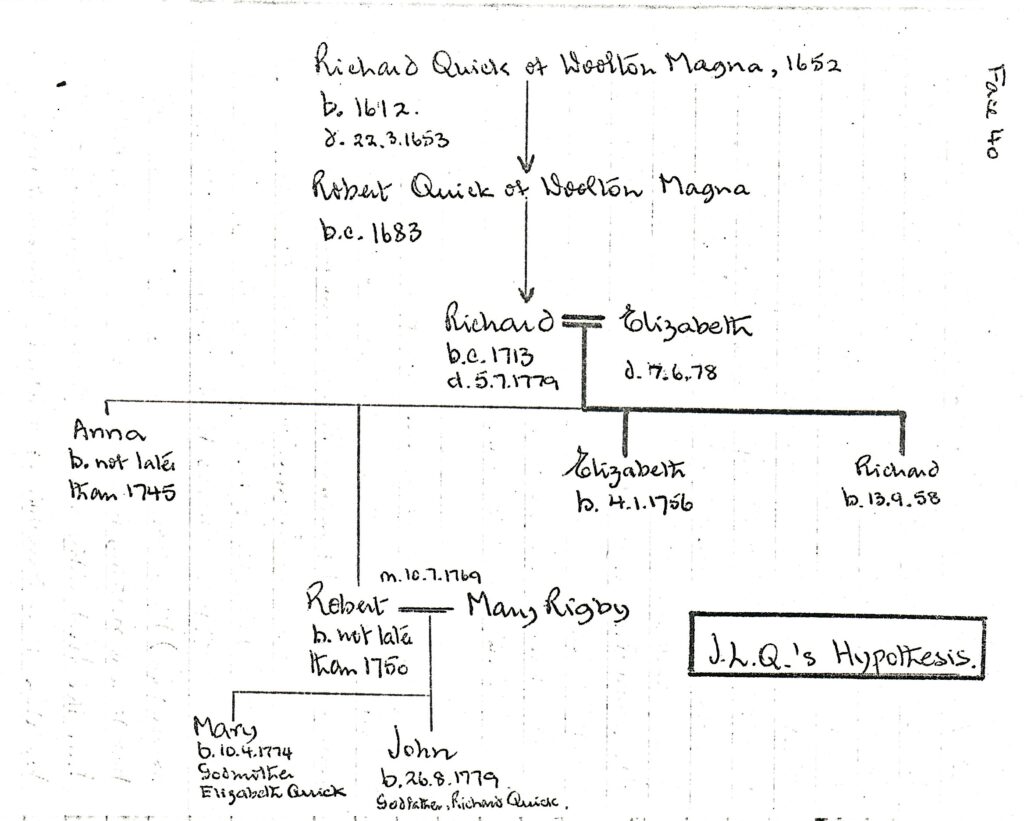 Richard Quick of Woolton Magna, 1652
b. 1612.
d. 22.3.1653
Face 40
Robert Quick of Woolton Magna
b.c. 1683
Richard = Elizabeth
b.c. 1713
d. 5.7.1779
d. 7.6.78
Anna
b. not later
than 1745
Elizabeth
b. 4.1.1756
Richard
b. 13.9.58
m. 10.7.1769
Robert — Mary Rigby
b. not later
than 1750
J.L.Q.'s Hypothesis.
Mary
b. 10.4.1774
Godmother
Elizabeth Quick
John
b. 26.8.1779
Godfather, Richard Quick.